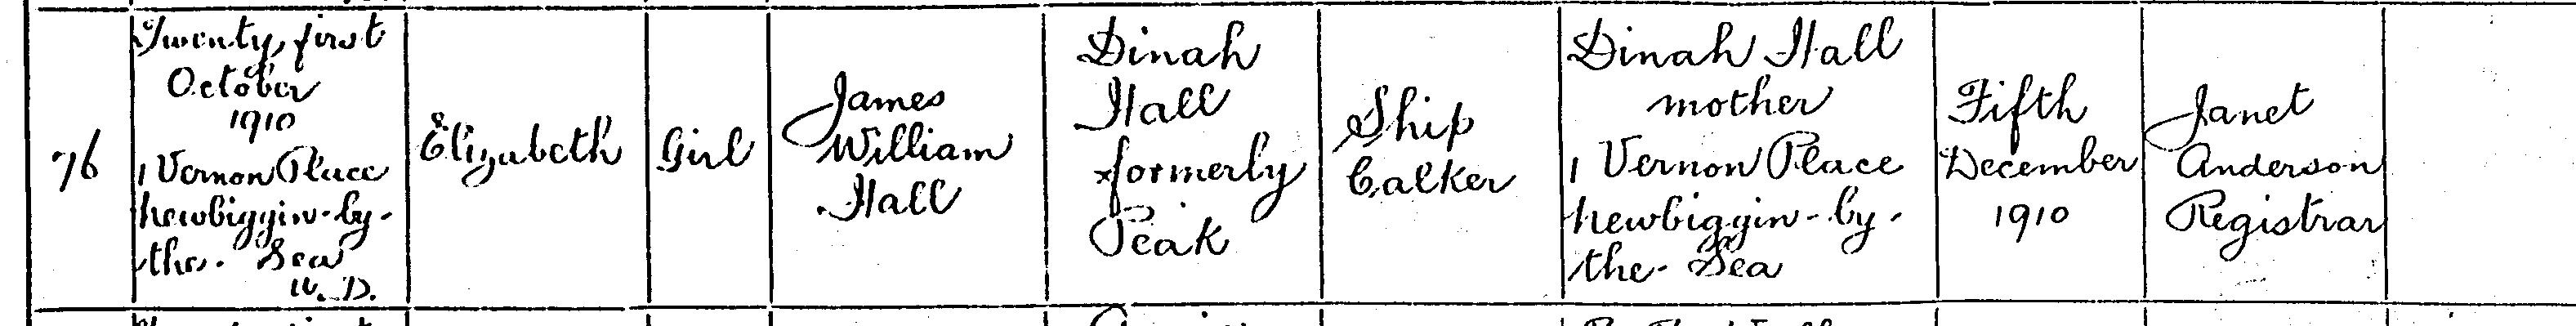 76
Twenty first
October
1910
1 Vernon Place
Newbiggin-by-
the-Sea
U.D.
Elizabeth
Girl
James
William
Hall
Dinah
Hall
formerly
Peak
Ship
Calker
Dinah Hall
mother
1 Vernon Place
Newbiggin-by-
the-Sea
Fifth
December
1910
Janet
Anderson
Registrar